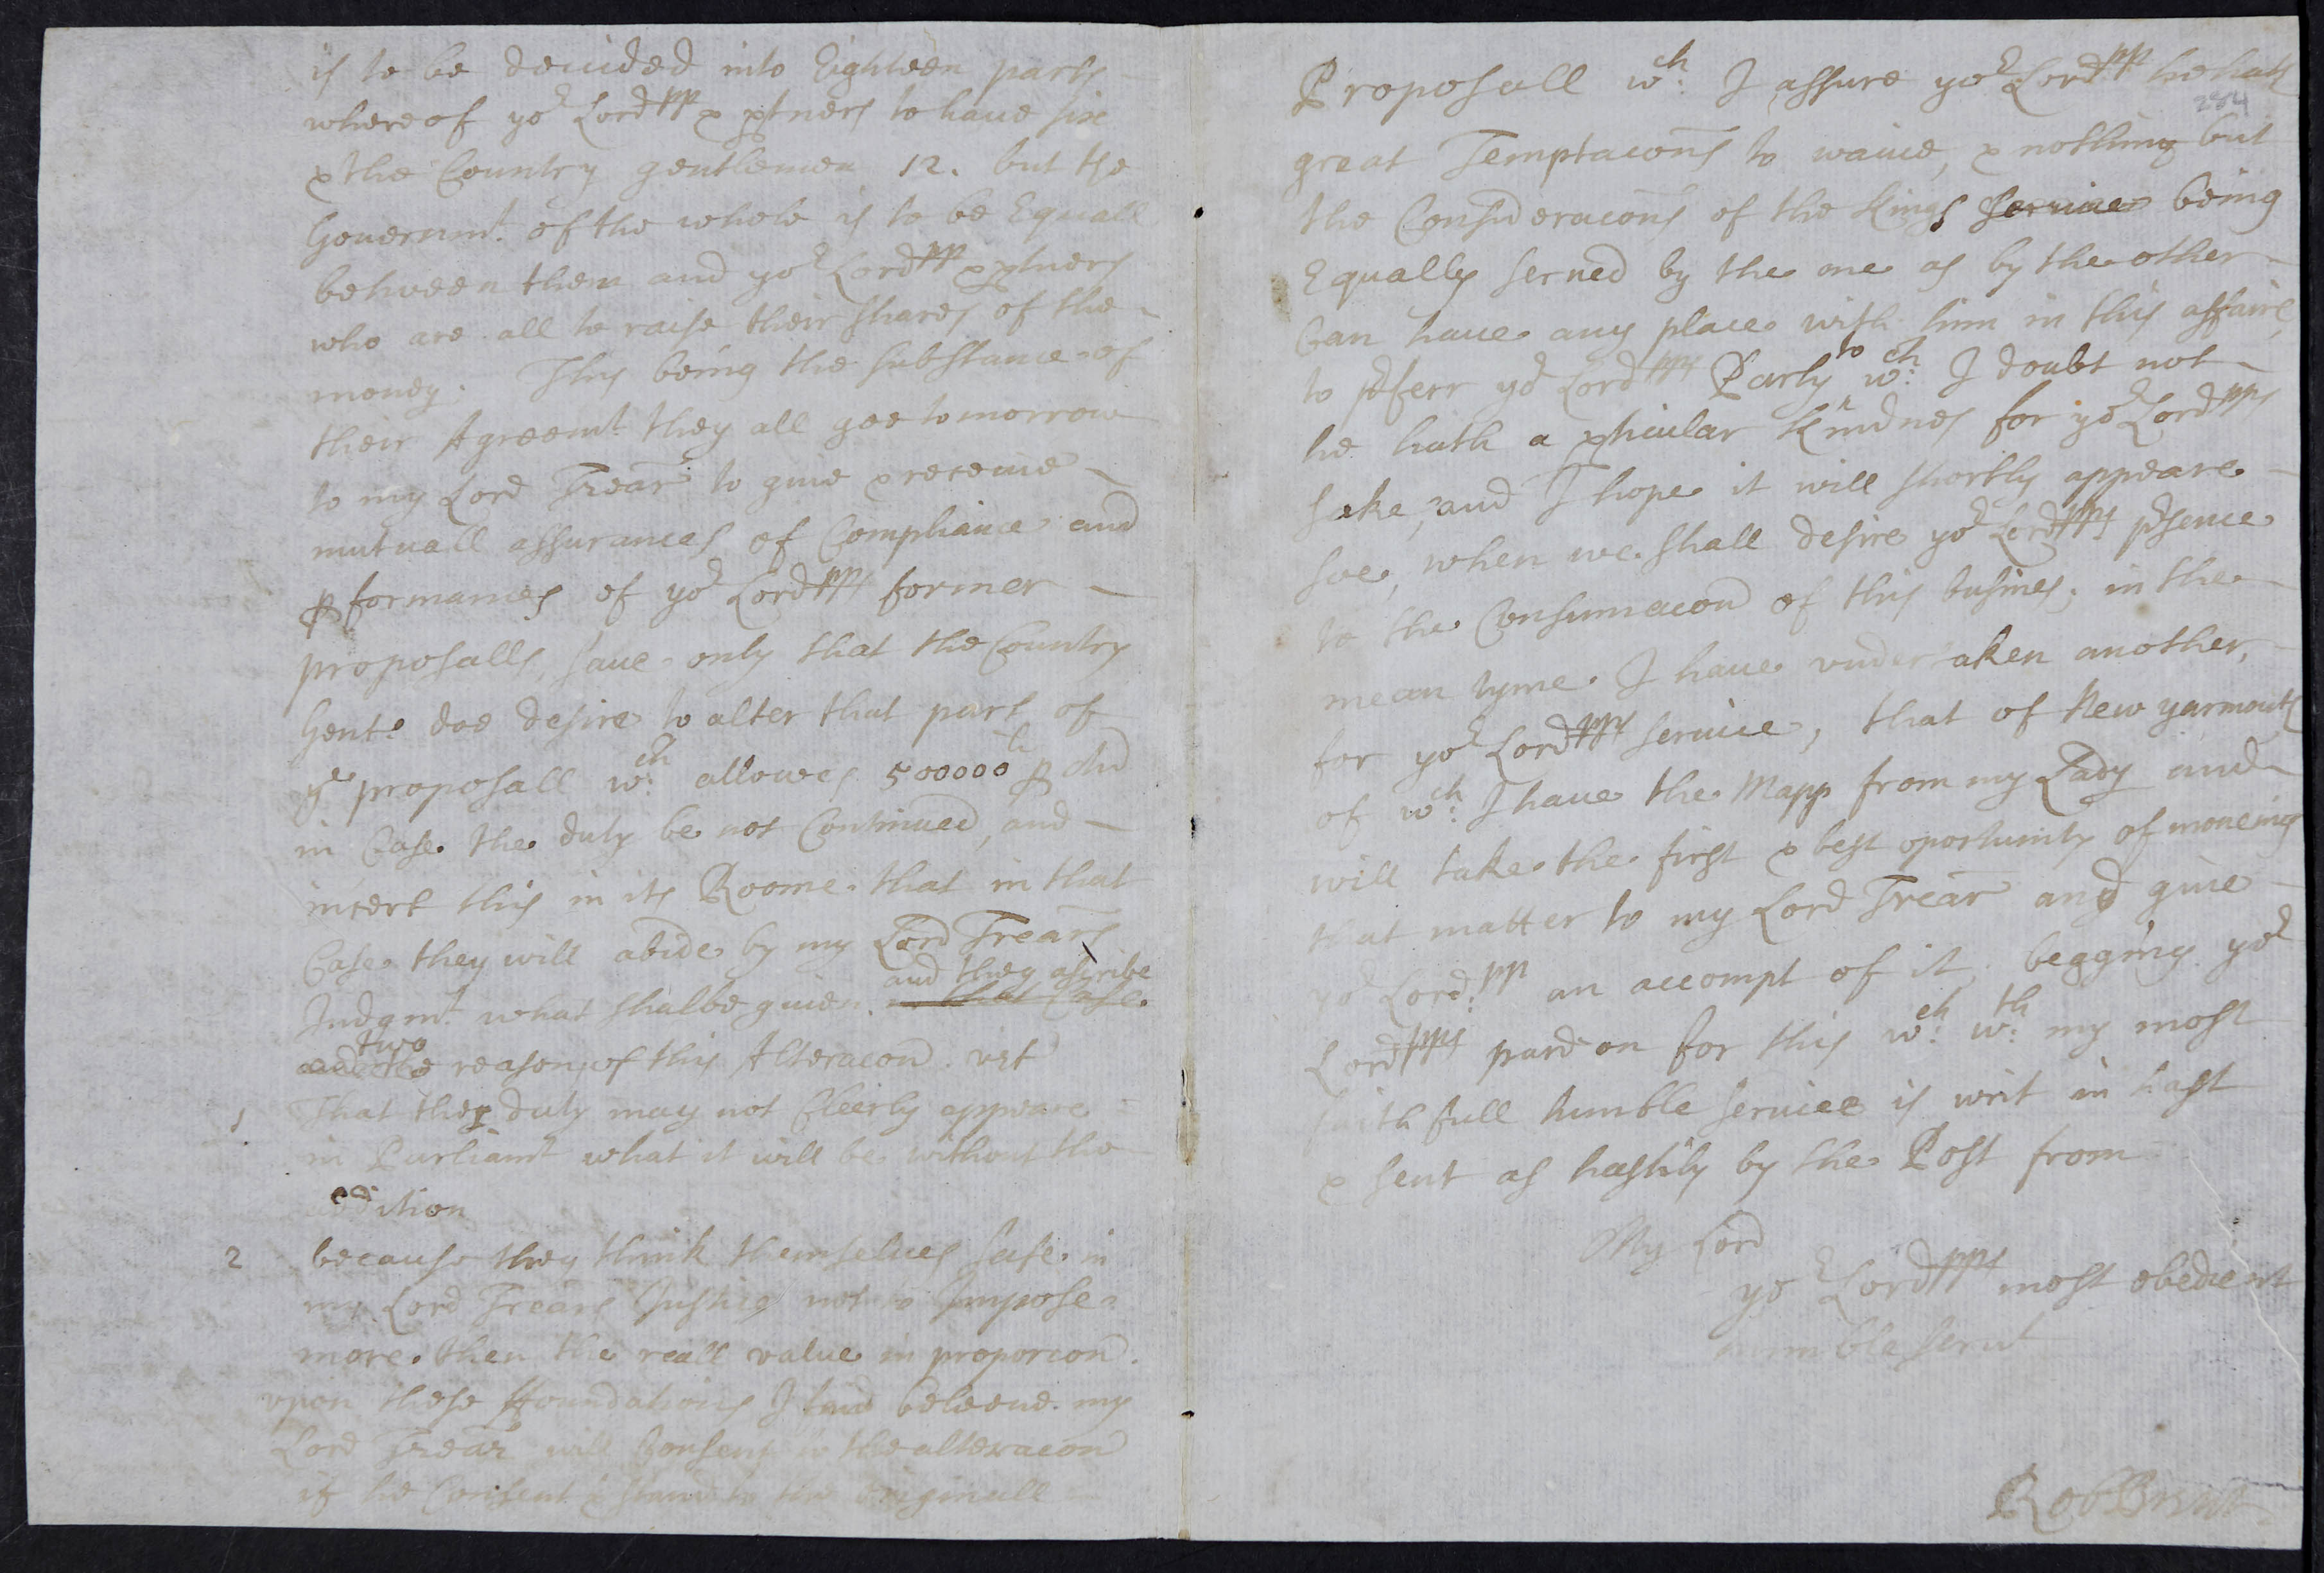 is to be deuided into Eighteen parts
whereof yor Lordpp & ptners to haue six
& the Country gentlemen 12. but the
Gouernmt. of the whole is to be Equall
between them and yor Lordpp & ptners
who are all to raise their shares of the
money. This being the substance of
their Agreemt. they all goe to morrow
to my Lord Trear to giue & receiue
mutuall assurances of Compliance and
pformances of yor Lordpps former
proposalls, saue only that the Country
Gent. doe desire to alter that part of
ye proposall wch: allowes 500000li p
in Case the duty be not Continued, and
insert this in its Roome. that in that
Case they will abide by my Lord Trears
and they ascribe
Judgmt. what shalbe giuen. in that Case.
two
and the reasons of this Alteracon. vizt
1 That they duty may not Cleerly appeare
in Parliamt what it will be without the
addition
2 because they think themselues safe in
my Lord Trears Justice not to Impose
more then the reall value in proporcon.
vpon these ffoundations I beleeue my
Lord Trear will Consent to the alteracon
if he Consent & stand to the originall
Proposall wch: I assure yor Lordpp he hath
234
great Temptacons to waiue, & nothing but
the Consideracons of the Kings seruice being
Equally serued by the one as by the other
Can haue any place with him in this affaire,
to pferr yor Lordpps Party to wch: I doubt not
he hath a pticular Kindnes for yor Lordpps
sake, and I hope it will shortly appeare
soe, when we shall desire yor Lordpps psence
to the Consumacon of this busines. in the
mean tyme I haue vndertaken another,
for yor Lordpps seruice, that of New yarmouth
of wch: I haue the Mapp from my Lady and
will take the first & best oportunity of moueing
that matter to my Lord Trear and giue
yor Lord:pp an accompt of it begging yor
Lordpps pardon for this wch: wth: my most
faithfull humble seruice is writ in hast
& sent as hastily by the Post from
My Lord
yor Lordpps most obedient
humble serut
Rob Brent